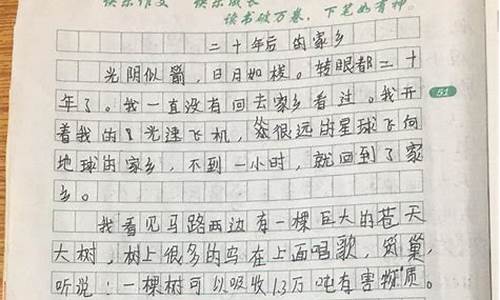 快乐作文 快乐成长
读书破万卷,下笔如有神。
二十年后的家乡
光阴似箭,日月如梭。转眼都二十
年了。我一直没有回去家乡看过。我开
51
着我的光速飞机,从很远的星球飞向
地球的家乡,不到一小时,就回到了家
乡。
我看见马路两边有一棵巨大的苍天
大树,树上很多的鸟在上面唱歌,筑巢,
听说:一棵树可以吸收13万吨有害物质。